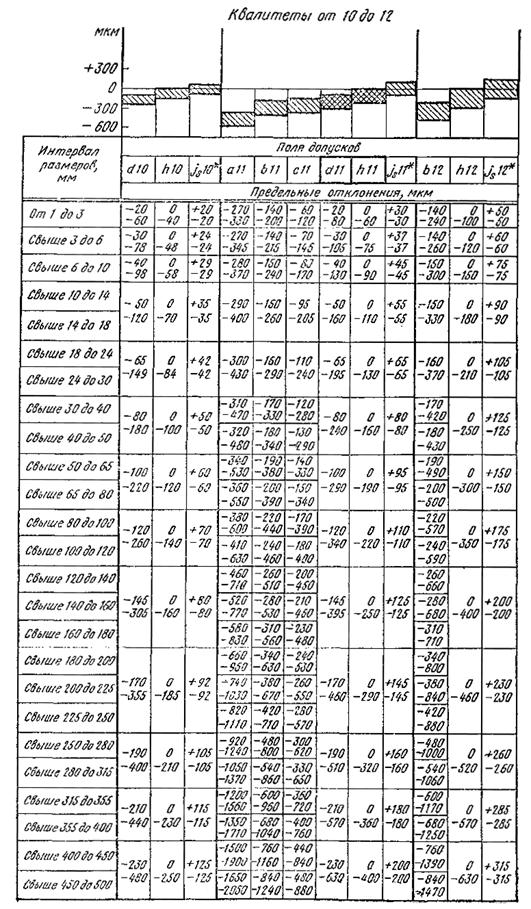 Квалитеты от 10 до 12
мкм
+300
0
-300
-600
Интервал размеров, мм
Поля допусков
d10 h10 js10* a11 b11 c11 d11 h11 js11* b12 h12 js12*
Предельные отклонения, мкм
От 1 до 3 -20 0 +20 -270 -140 -60 -20 0 +30 -140 0 +50
-60 -40 -20 -330 -200 -120 -80 -60 -30 -240 -100 -50
Свыше 3 до 6 -30 0 +24 -270 -140 -70 -30 0 +37 -140 0 +60
-78 -48 -24 -345 -215 -145 -105 -75 -37 -260 -120 -60
Свыше 6 до 10 -40 0 +29 -280 -150 -80 -40 0 +45 -150 0 +75
-98 -58 -29 -370 -240 -170 -130 -90 -45 -300 -150 -75
Свыше 10 до 14
-50 0 +35 -290 -150 -95 -50 0 +55 -150 0 +90
-120 -70 -35 -400 -260 -205 -160 -110 -55 -330 -180 -90
Свыше 14 до 18
Свыше 18 до 24
-65 0 +42 -300 -160 -110 -65 0 +65 -160 0 +105
-149 -84 -42 -430 -290 -240 -195 -130 -65 -370 -210 -105
Свыше 24 до 30
Свыше 30 до 40 -310 -170 -120 -170
-470 -330 -280 -420
-80 0 +50 -80 0 +80 0 +125
-180 -100 -50 -240 -160 -80 -250 -125
Свыше 40 до 50 -320 -180 -130 -180
-480 -340 -290 -430
Свыше 50 до 65 -340 -190 -140 -190
-530 -380 -330 -490
-100 0 +60 -100 0 +95 0 +150
-220 -120 -60 -290 -190 -95 -300 -150
Свыше 65 до 80 -360 -200 -150 -200
-550 -390 -340 -500
Свыше 80 до 100 -380 -220 -170 -220
-600 -440 -390 -570
-120 0 +70 -120 0 +110 0 +175
-260 -140 -70 -340 -220 -110 -350 -175
Свыше 100 до 120 -410 -240 -180 -240
-630 -460 -400 -590
Свыше 120 до 140 -460 -260 -200 -260
-710 -510 -450 -660
Свыше 140 до 160 -145 0 +80 -520 -280 -210 -145 0 +125 -280 0 +200
-305 -160 -80 -770 -530 -460 -395 -250 -125 -680 -400 -200
Свыше 160 до 180 -580 -310 -230 -310
-830 -560 -480 -710
Свыше 180 до 200 -660 -340 -240 -340
-950 -630 -530 -800
Свыше 200 до 225 -170 0 +92 -740 -380 -260 -170 0 +145 -380 0 +230
-355 -185 -92 -1030 -670 -550 -460 -290 -145 -840 -460 -230
Свыше 225 до 250 -820 -420 -280 -420
-1110 -710 -570 -880
Свыше 250 до 280 -920 -480 -300 -480
-1240 -800 -620 -1000
-190 0 +105 -190 0 +160 0 +260
-400 -210 -105 -510 -320 -160 -520 -260
Свыше 280 до 315 -1050 -540 -330 -540
-1370 -860 -650 -1060
Свыше 315 до 355 -1200 -600 -360 -600
-1560 -960 -720 -1170
-210 0 +115 -210 0 +180 0 +285
-440 -230 -115 -570 -360 -180 -570 -285
Свыше 355 до 400 -1350 -680 -400 -680
-1710 -1040 -760 -1250
Свыше 400 до 450 -1500 -760 -440 -760
-1900 -1160 -840 -1390
-230 0 +125 -230 0 +200 0 +315
-480 -250 -125 -630 -400 -200 -630 -315
Свыше 450 до 500 -1650 -840 -480 -840
-2050 -1240 -880 -1470